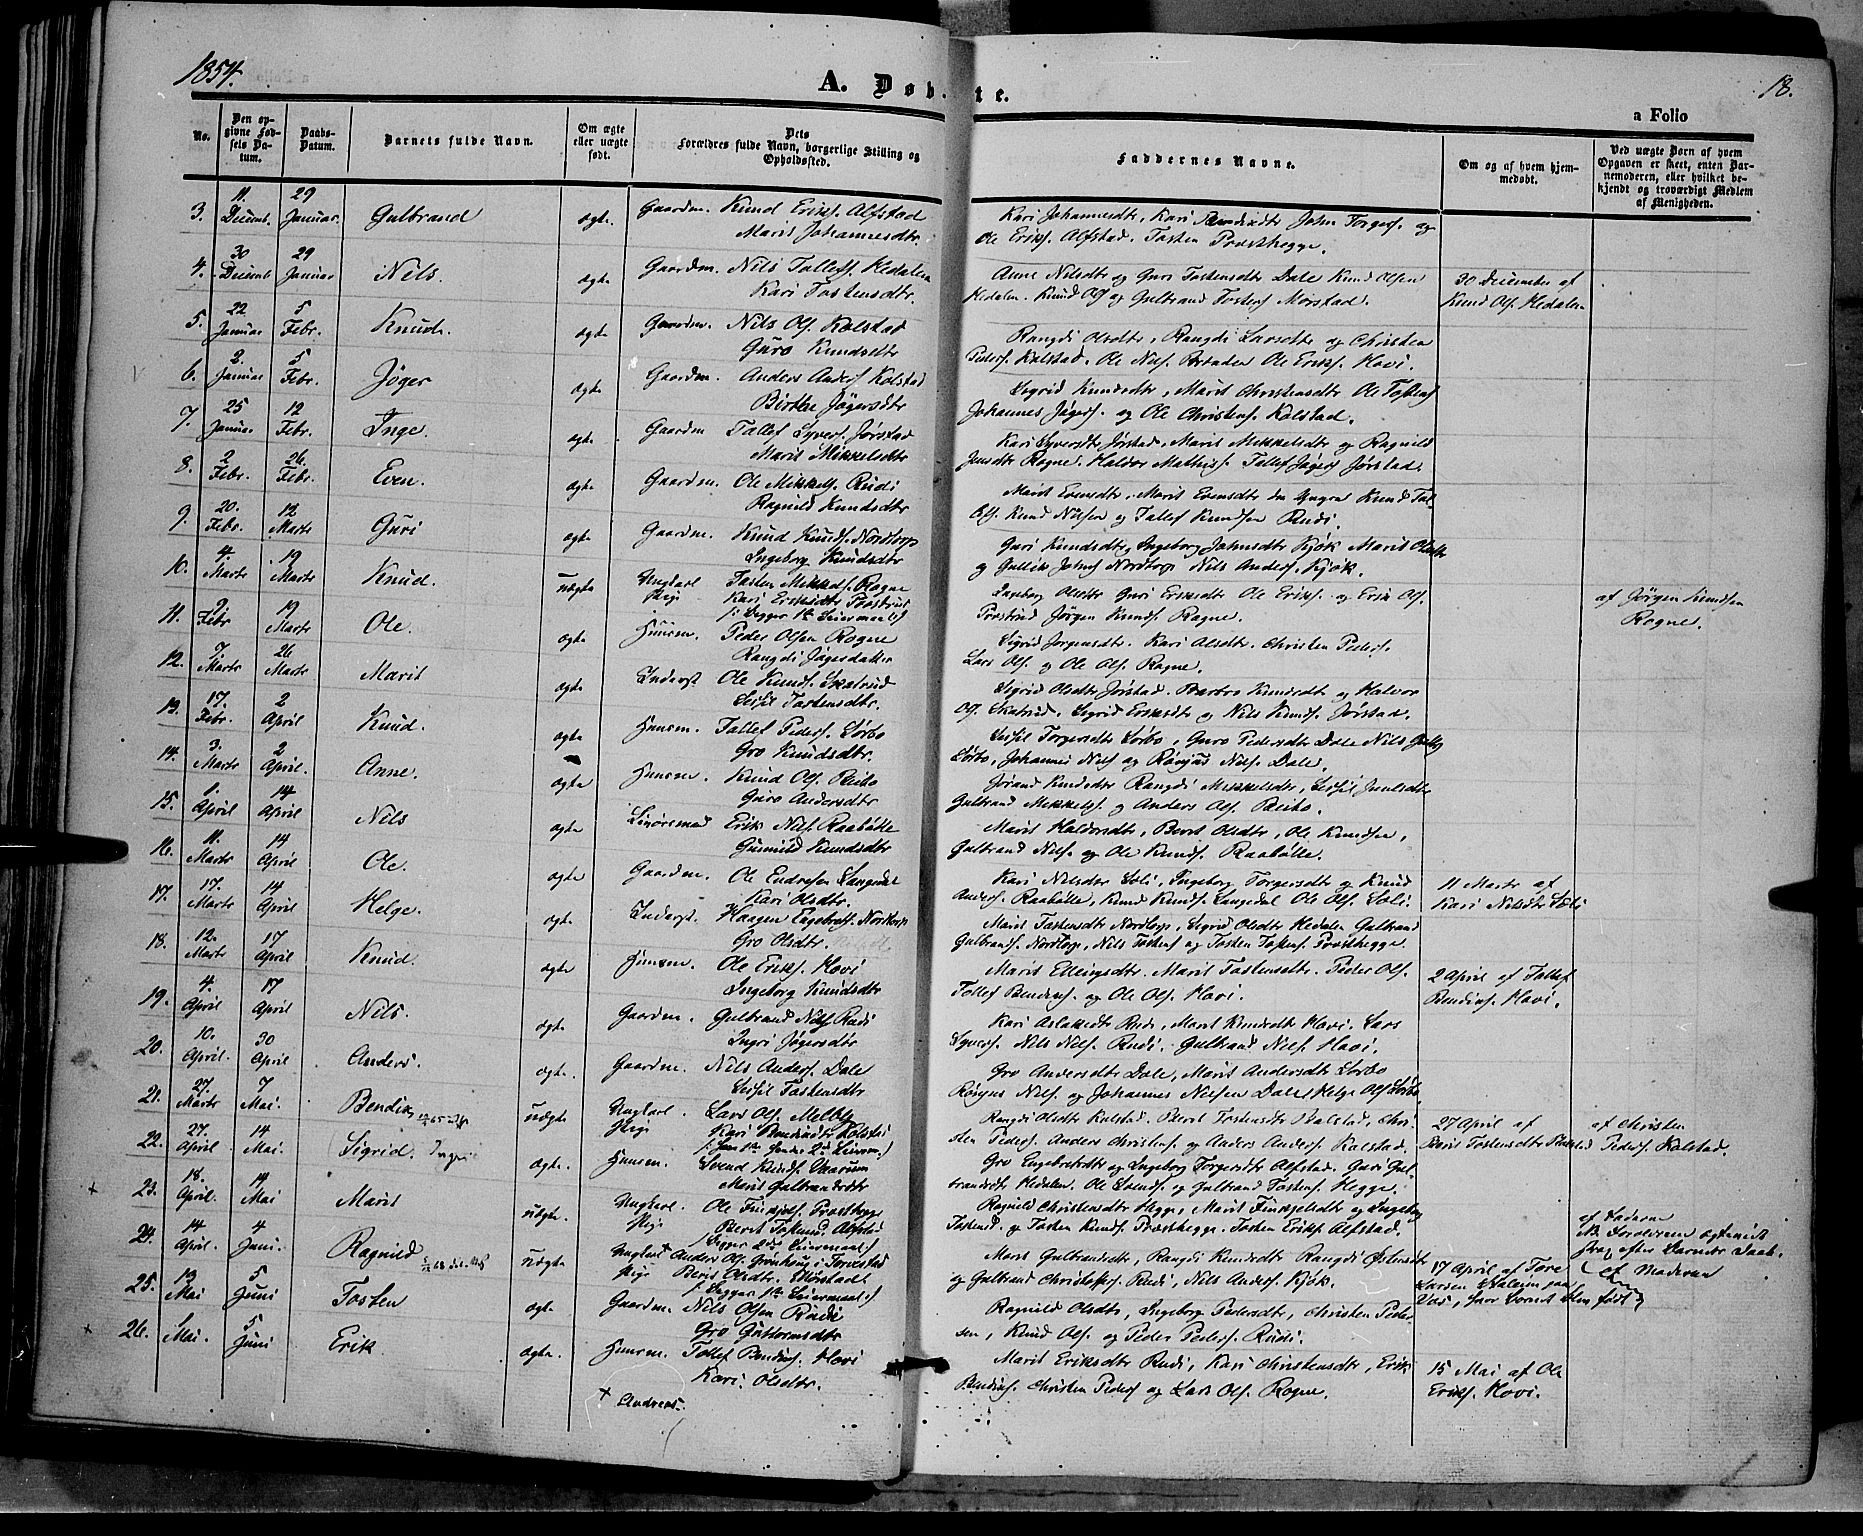 1854.
A. Døbte.
18.
a Folio
No.
Den opgivne Fødsels Datum.
Daabs-Datum.
Barnets fulde Navn.
Om ægte eller uægte født.
Dets Forældres fulde Navn, borgerlige Stilling og Opholdssted.
Faddernes Navne.
Om og af hvem hjemmedøbt.
Ved uægte Børn af hvem Opgaven er skeet, enten Barnemoderen, eller hvilket bekjendt og troværdigt Medlem af Menigheden.
3. 11. Decemb. 29 Januar. Gulbrand ægte. Gaardm. Knud Eriks. Alfstad
Marit Johannesdtr.
Kari Johannesdtr, Kari John Torgers. og
Ole Eriks. Alfstad. Tosten Præsthegge.
4. 30 Decemb 29 Januar Nils. ægte Gaardm. Nils Tollefs. Hedalen
Kari Tostensdtr.
Anne Nilsdtr og Guri Tostensdtr Dale Knud Olsen
Hedalen. Knud Ols og Gulbrand Tostens Mørstad.
30 December af
Knud Ols. Hedalen
5. 22 Januar 5 Febr. Knud. ægte Gaardm. Nils Ols. Kalstad
Guro Knudsdtr
Rangdi Olsdtr, Rangdi Larsdtr og Christen
Peders. Kalstad. Ole Nils. Ole Eriks. Hovi.
6. 2. Januar 5 Febr. Jøger ægte Gaardm. Anders Anders. Kolstad
Birthe Jøgersdtr
Sigrid Knudsdtr, Marit Christensdtr Ole Tostens
Johannes Jøgers. og Ole Christens. Kalstad.
7. 25 Januar 12 Febr. Inge. ægte Gaardm Tollef Syvers. Jørstad
Marit Mikkelsdtr
Kari Syversdtr Jørstad, Marit Mikkelsdtr og Ragnild
Jensdtr Rogne. Haldor Mathis. Tollef Jøgers Jørstad.
8. 2 Febr. 26. Febr. Even. ægte Gaardm. Ole Mikkels. Rudi
Ragnild Knudsdtr
Marit Evensdtr. Marit Evensdtr den Yngre Knud
Ols. Knud Nilsen og Tollef Knudsen Rudi.
9. 20. Febr. 12 Marts Guri ægte Gaardm. Knud Knuds. Nordtorp
Ingeborg Knudsdtr
Guri Knudsdtr, Ingeborg Johnsdtr Kjøk Marit Olsdtr
og Gullik Johns Nordtorp Nils Anders. Kjøk.
10. 4. Marts 19 Marts Knud. uægte Ungkarl Tosten Mikkels. Rogne
Pige Kari Eriksdtr
(: begges 1ste Leiermaal :)
Ingeborg Olsdtr Guri Eriksdtr Ole Eriks. og Erik Ols.
Jørgen Knuds. Rogne.
af Jørgen Knudsen
Rogne.
11. Febr 19 Marts Ole. ægte Huusm. Peder Olsen Rogne
Rangdi Jøgersdatter
Sigrid Jørgensdtr. Kari Olsdtr. Christen Peders.
Lars Ols. og Ole Ols. Rogne.
12. 7. Marts 26 Marts Marit ægte Inderst Ole Knuds. Skatrud
Sidsil Tostensdtr.
Sigrid Olsdtr Jørstad. Barbro Knudsdtr og Halvor
Ols. Skatrud. Sigrid Eriksdtr og Nils Knuds. Jørstad.
13. 17. Febr. 2 April Knud. ægte Huusm. Tollef Peders. Sørbo
Gro Knudsdtr.
Sidsil Torgersdtr Sørbo, Guro Pedersdtr Dale Nils
Sørbo, Johannes Nils og Røngus Nils. Dale.
14. 3. Marts 2 April. Anne. ægte Huusm. Knud Ols. Reibo
Guro Andersdtr
Jørand Knudsdtr Rangdi Mikkelsdtr, Sidsil
Gulbrand Mikkels. og Anders Ols. Reibo.
15. 1. April 14 April Nils ægte Erik Nils. Raabølle
Gunnild Knudsdtr
Marit Haldorsdtr, Berit Olsdtr, Ole Knudsen,
Gulbrand Nils. og Ole Knuds. Raabølle.
16. 11. Marts 14 April Ole. ægte Gaardm. Ole Endresen Langedal
Kari Olsdtr.
Kari Nilsdtr Soli, Ingeborg Torgersdtr og Knud
Anders. Raabølle, Knud Knuds. Langedal Ole Ols. Soli.
11 Marts af
Kari Nilsdtr Soli
17. 17. Marts 14 April Helge. ægte Inderst. Haagen Engebrets. Nordtorp
Gro Olsdtr.
Marit Tostensdtr Nordtorp, Sigrid Olsdtr Hedalen Gulbrand
Gulbrands. Nordtorp, Nils Tostens og Tosten Tostens. Præsthegge.
18. 12. Marts 17 April Knud. ægte Huusm. Ole Eriks. Hovi
Ingeborg Knudsdtr
Marit Ellingsdtr. Marit Tostensdtr. Peder Ols.
Tollef Bendiks. og Ole Ols. Hovi.
2 April af Tollef
Bendiks. Hovi.
19. 4. April 17 April Nils. ægte Gaardm. Gulbrand Nils Rudi
Ingri Jøgersdtr
Kari Aslaksdtr Rudi, Marit Knudsdtr Hovi. Lars
Syvers. Nils Nils. Rudi. Gulbrand Nils. Hovi.
20. 10. April. 30 April Anders. ægte. Gaardm. Nils Anders. Dale
Sidsil Tostensdtr
Gro Andersdtr Dale, Marit Andersdtr Sørbo
Røngus Nils. og Johannes Nielsen Dale Helge Ols Sørbo.
21. 27. Marts 7 Mai. Bendix uægte Ungkarl. Lars Ols. Melby
Pige Kari Bendiksdtr Kolstad
Rangdi Olsdtr Kalstad, Berit Tostensdtr Kalstad, Christen
Peders. Anders Christens. og Anders Anders. Kalstad.
27 April af
Berit Tostensdtr
af Christen
Peders. Kalstad.
22. 27. April 14 Mai. Sigrid. ægte. Huusm. Svend Knuds.
Marit Gulbrandsdtr
Gro Engebretsdtr og Ingeborg Torgersdtr Alfstad. Guri Gulbrandsdtr
Hedalen. Ole Svends. og Gulbrand Tostens. Hegge.
+ 23. 18. April. 14 Mai Marit uægte. Ungkarl. Ole Præsthegge
Pige Berit Alfstad
(: begges 2det Leiermaal :)
Ragnild Christensdtr Hegge, Marit og Ingeborg
Tosten Knuds. Præsthegge. Tosten Eriks. Alfstad.
af Faderen
NB Forældrene ægteviet
strax efter Barnets Daab.
24. 14 April. 4 Juni. Ragnild uægte Ungkarl Anders Ols. i
Pige Berit Olsdtr. Mørstad
(: begges 1ste Leiermaal :)
Marit Gulbrandsdtr, Rangdi Knudsdtr Rangdi Østensdtr
og Gulbrand Christophers. Rudi, Nils Anders. Kjøk.
17 April af Tore
Larsen
hvor Barnet blev født
af Moderen
25. 13 Mai 5 Juni Tosten ægte Gaardm. Nils Olsen Rudi
Gro Guttormsdtr
Ragnild Olsdtr, Ingeborg Pedersdtr, Christen Pedersen,
Knud Ols. og Peder Peders. Rudi.
+ 26. Mai. 5 Juni Erik. ægte Huusm. Tollef Bendiks. Hovi
Kari. Olsdtr.
Marit Eriksdtr Rudi, Kari Christensdtr, Erik
Bendiks. Christen Peders og Lars Ols. Rogne.
15 Mai af Ole
Eriks. Hovi.
+ Andreas.